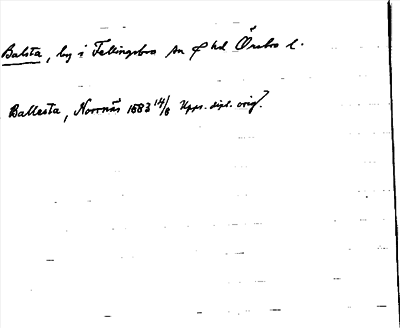 Balsta, by i Fellingsbro sn o hd Örebro l.
Ballesta, Norrnäs 1683 14/8 Upps. dipl. orig.